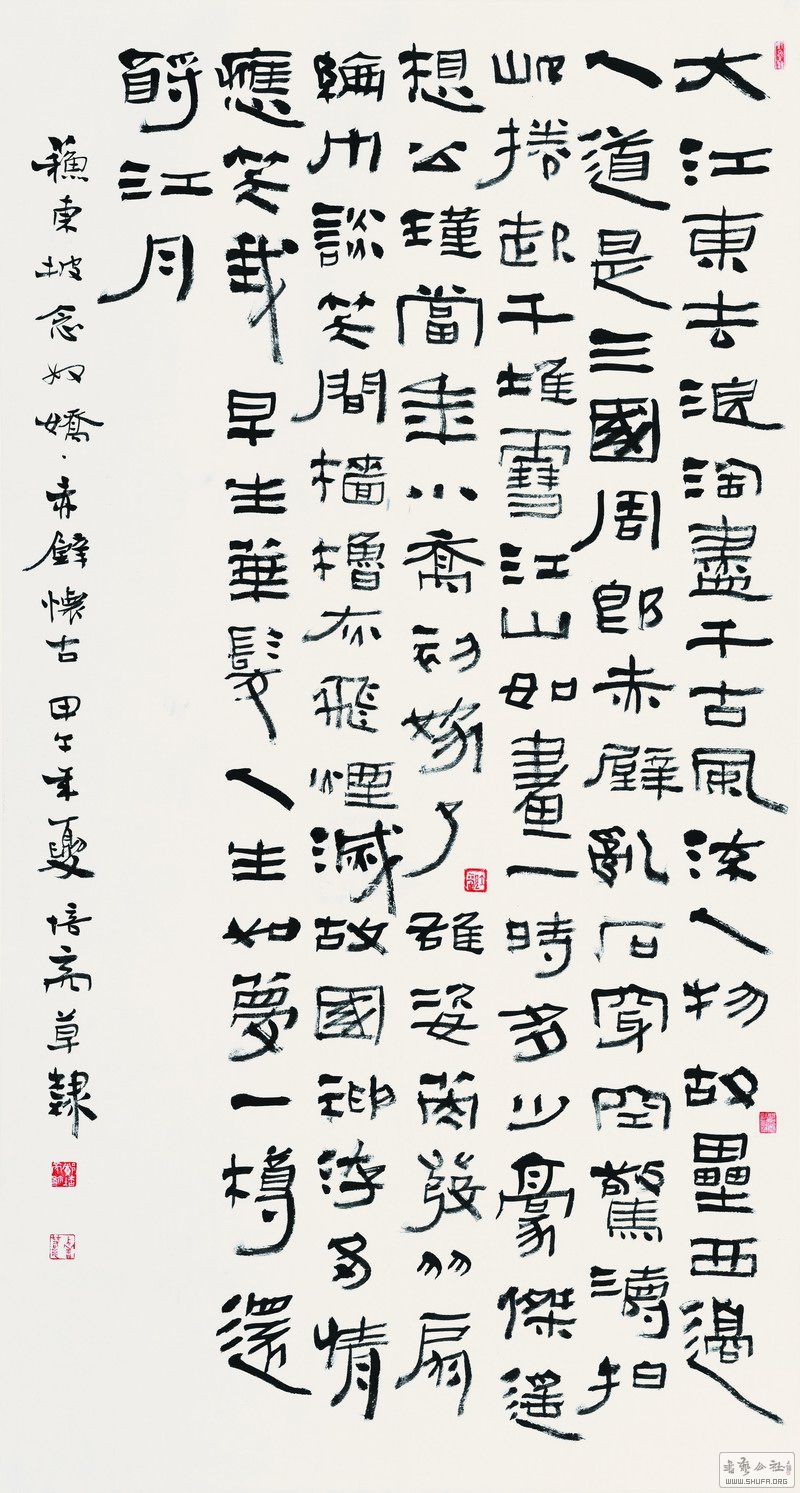 大江東去浪淘盡千古風流人物故壘西邊
人道是三國周郎赤壁亂石穿空驚濤拍
岸捲起千堆雪江山如畫一時多少豪傑遙
想公瑾當年小喬初嫁了雄姿英發羽扇
綸巾談笑間檣櫓灰飛煙滅故國神游多情
應笑我早生華髮人生如夢一樽還
酹江月
蘇東坡念奴嬌·赤壁懷古 甲午年夏 培亮草隸
書藝公社
WWW.SHUFA.ORG